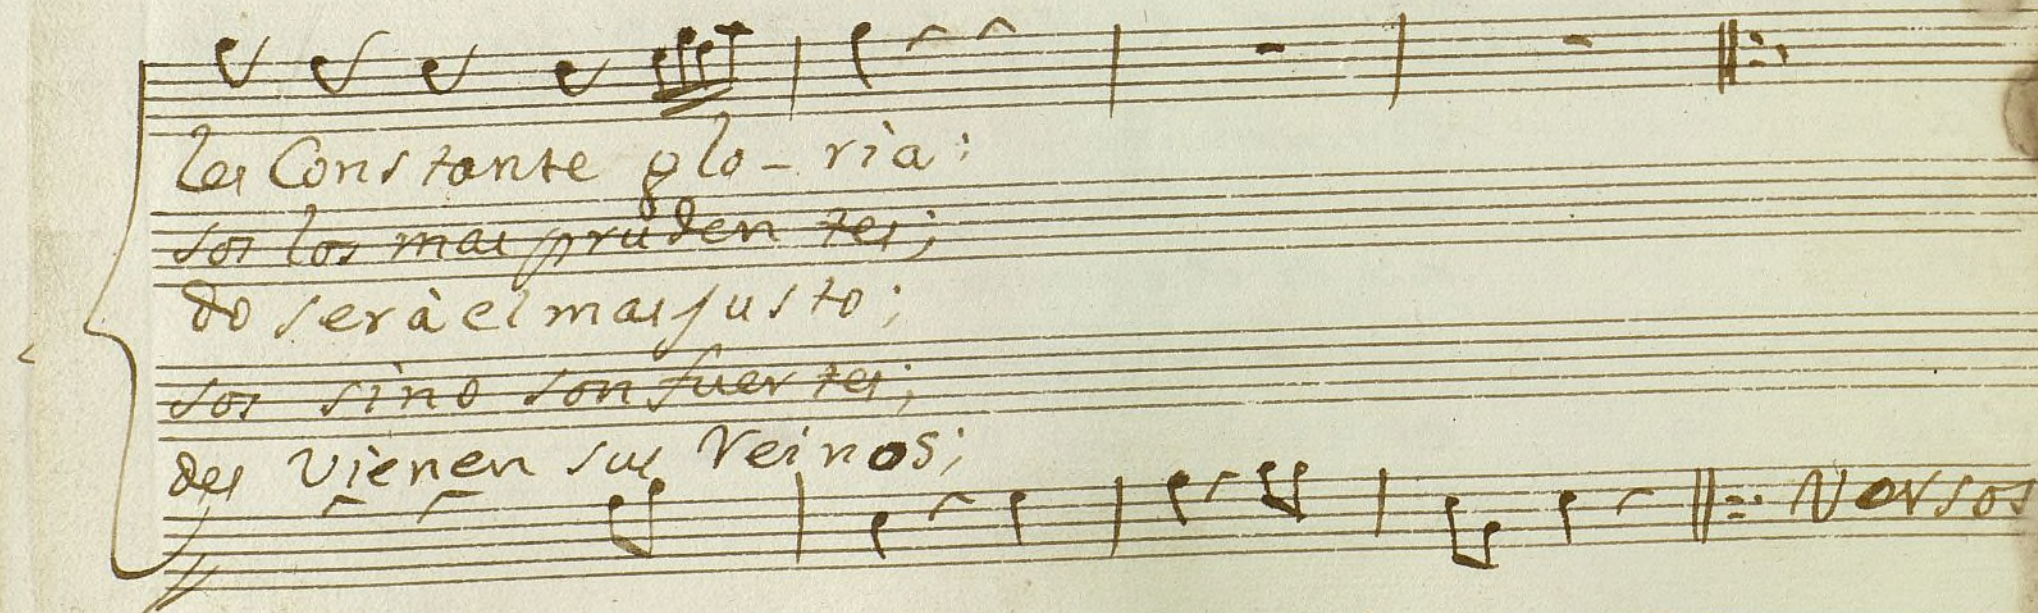 les Constante glo- ria:
sos los mas pruden tes;
do serà el mas justo;
sos sino son fuer tes;
des vienen sus Reinos;
Versos